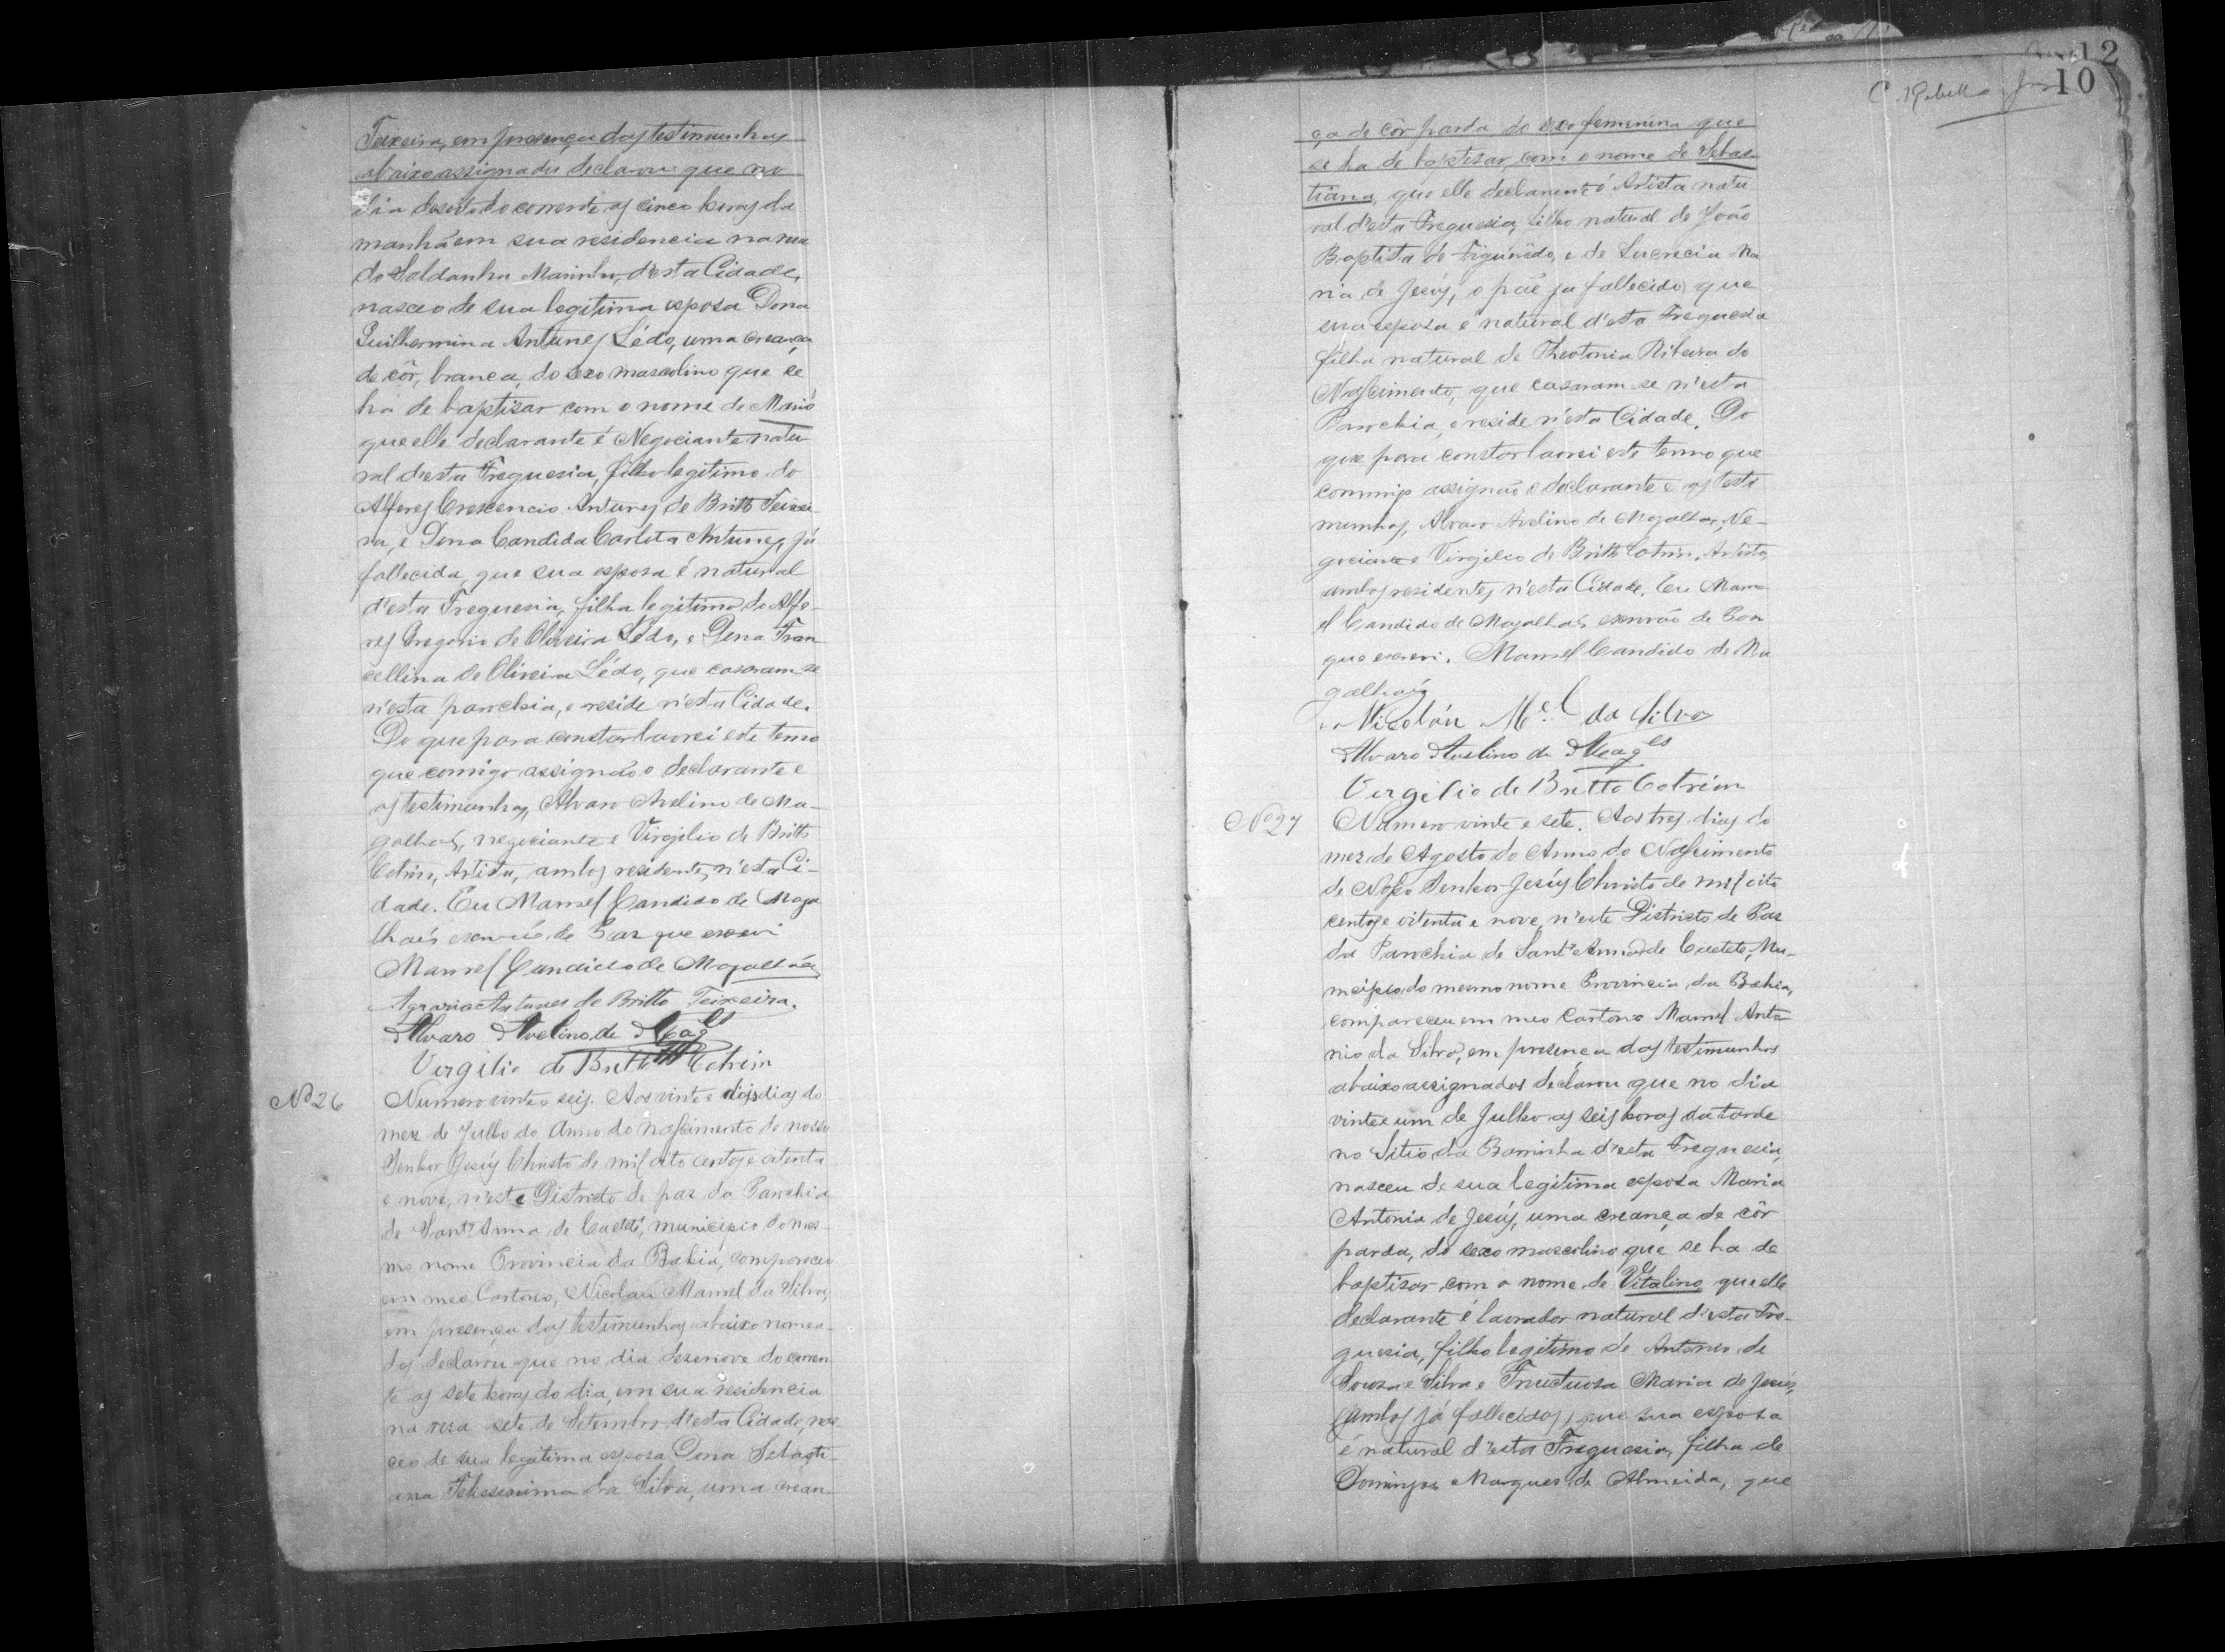 Teixeira, em presença das testimunhas
abaixo assignados declarou que no
dia desoito do corrente as cinco horas da
manhã em sua residencia na rua
do Saldanha Marinho, d'esta Cidade,
nasceo de sua legitima esposa Dona
Guilhermina Antunes Lédo, uma creança
de côr, branca, do sexo mascolino que se
ha de baptisar com o nome de Mario
que elle declarante é Negociante natu
ral d'esta Freguesia, filho legitimo do
Alferes Crescencio Antunes de Britto Teixei-
ra, e Dona Candida Carlota Antunes, já
fallecida, que sua esposa é natural
d'esta Freguesia, filha legitima do Alfe-
res Gregorio de Oliveira Lédo, e Dona Fran
cellina de Oliveira Lédo, que casaram se
n'esta parochia, e reside n'esta Cidade.
Do que para constar lavrei este termo
que comigo assignão o declarante e
as testimunhas, Alvaro Avelino de Ma-
galhaes, negociante e Virgilio de Britto
Cotrim, Artista, ambos residentes n'esta Ci-
dade. Eu Manoel Candido de Maga
lhaes escrivão de Paz que escrevi
Manoel Candido de Magalhães
Antunes de Britto Teixeira.
Alvaro Avelino de Mag.es
Virgilio de Britto Cotrim
Nº 26 Numero vinte e seis. Aos vinte e dois dias do
mez de Julho do Anno do nascimento de nosso
Senhor Jesús Christo de mil oito centos e oitenta
e nove, n'este Districto de paz da Parochia
de Sant'Anna de Caeteté, municipio do mes-
mo nome Provincia da Bahia, compareceo
em meo Cartorio, Nicolau Manoel da Silva,
em presença das testimunhas abaixo nomea-
das declarou que no dia desenove do corren-
te as sete horas do dia, em sua residencia
na rua sete de Setembro d'esta Cidade, nas-
ceo de sua legitima esposa Dona Sebasti-
ana da Silva, uma crean-
C. Rebello
12
10
ça de côr parda do sexo femenina que
se ha de baptisar, com o nome de Sebas-
tiana, que elle declarante é Artista natu
ral d'esta Freguesia, filho natural de João
Baptista de Figuerêdo, e de Lucrecia Ma
ria de Jesús, o pae ja fallecido, que
sua esposa é natural d'esta Freguesia
filha natural de Theotonia Ribeira do
Nascimento, que casaram-se n'esta
Parochia, e reside n'esta Cidade. Do
que para constar lavrei este termo que
commigo assignão o declarante e as testi
munhas, Alvaro Avelino de Magalhaes, Ne-
gociante e Virgilio de Britto Cotrim, Artista,
ambos residentes n'esta Cidade. Eu Mano
el Candido de Magalhaes escrivão de Paz
que escrevi. Manoel Candido de Ma
galhaes
Nicoláu M.el da Silva
Alvaro Avelino de Mag.es
Virgilio de Britto Cotrim
Nº 27 Numero vinte e sete. Aos tres dias do
mez de Agosto do Anno do Nascimento
de Nosso Senhor Jesús Christo de mil oito
centos e oitenta e nove, n'este Districto de Paz
da Parochia de Sant'Anna de Caeteté, Mu-
nicipio do mesmo nome Provincia da Bahia,
compareceu em meo Cartorio Manoel Anto
nio da Silva, em presença das testimunhas
abaixo assignados declarou que no dia
vinte e um de Julho as seis horas da tarde
no Sitio da Barrinha d'esta Freguesia,
nasceu de sua legitima esposa Maria
Antonia de Jesús, uma creança de côr
parda, do sexo mascolino que se ha de
baptisar com o nome de Vitalino, que elle
declarante é lavrador natural d'esta Fre-
guesia, filho legitimo de Antonio de
Souza e Silva e Fructuosa Maria de Jesús,
(ambos já fallecidos), que sua esposa
é natural d'esta Freguesia, filha de
Domingos Marques de Almeida, que